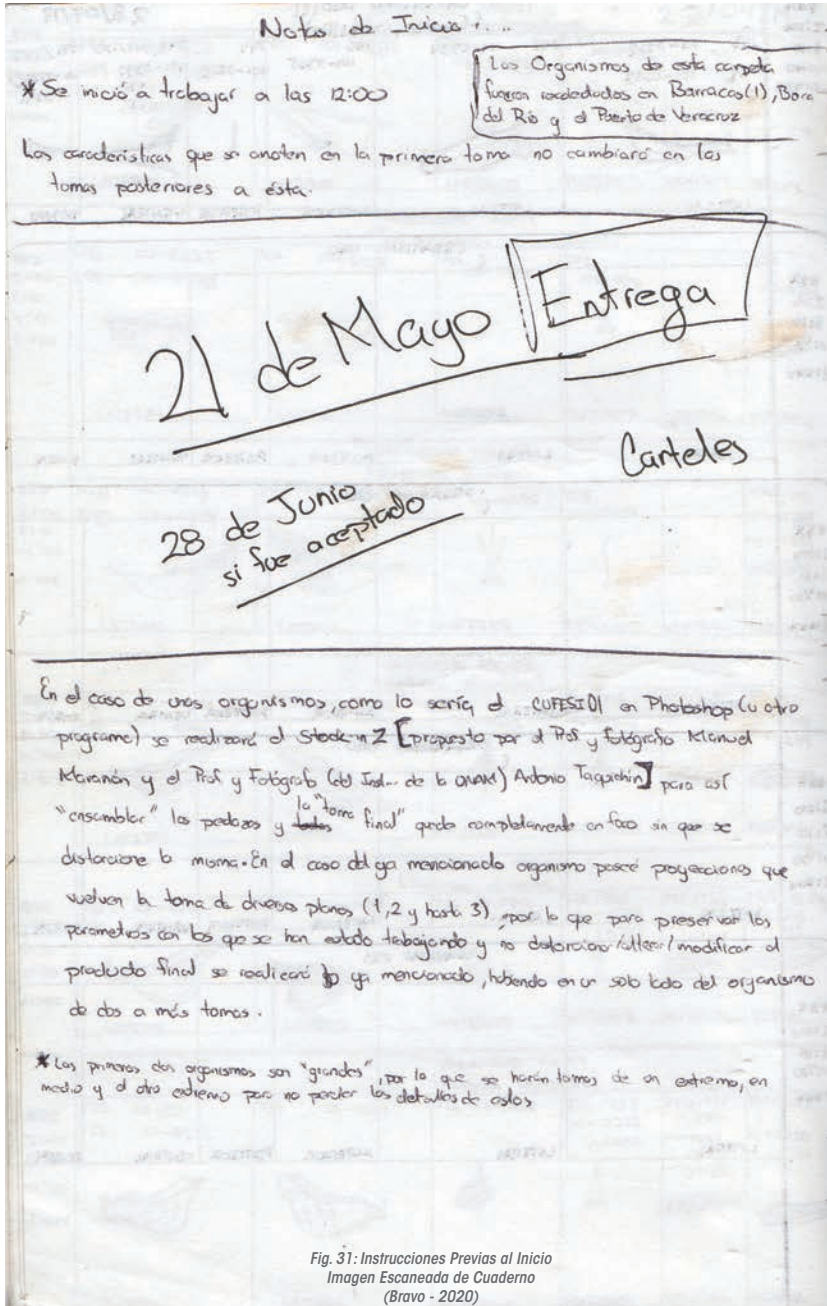 Notas de Inicio
* Se inició a trabajar a las 12:00
Los Organismos de esta carpeta
fueron recolectados en Barracas(1), Boca
del Río y el Puerto de Veracruz
Las características que se anoten en la primera toma no cambiará en las
tomas posteriores a ésta.
21 de Mayo Entrega
Carteles
28 de Junio
si fue aceptado
En el caso de unos organismos, como lo sería el CUFESIDI en Photoshop (u otro
programa) se realizará el Stock n Z [propuesto por el Prof y fotógrafo Manuel
y el Prof y Fotógrafo (del Inst... de la UNAM) Antonio] para así
"ensamblar" los pedazos y la "toma final" quede completamente en foco sin que se
distorcione la misma. En el caso del ya mencionado organismo poseé proyecciones que
vuelven la toma de diversos planos (1, 2 y hasta 3), por lo que para preservar los
parametros con los que se han estado trabajando y no distorcionar/alterar/modificar el
producto final se realizará lo ya mencionado, habiendo en un solo lado del organismo
de dos a más tomas.
* Los primeros dos organismos son "grandes", por lo que se harán tomas de un extremo, en
medio y el otro extremo para no perder los detalles de estos
Fig. 31: Instrucciones Previas al Inicio
Imagen Escaneada de Cuaderno
(Bravo - 2020)